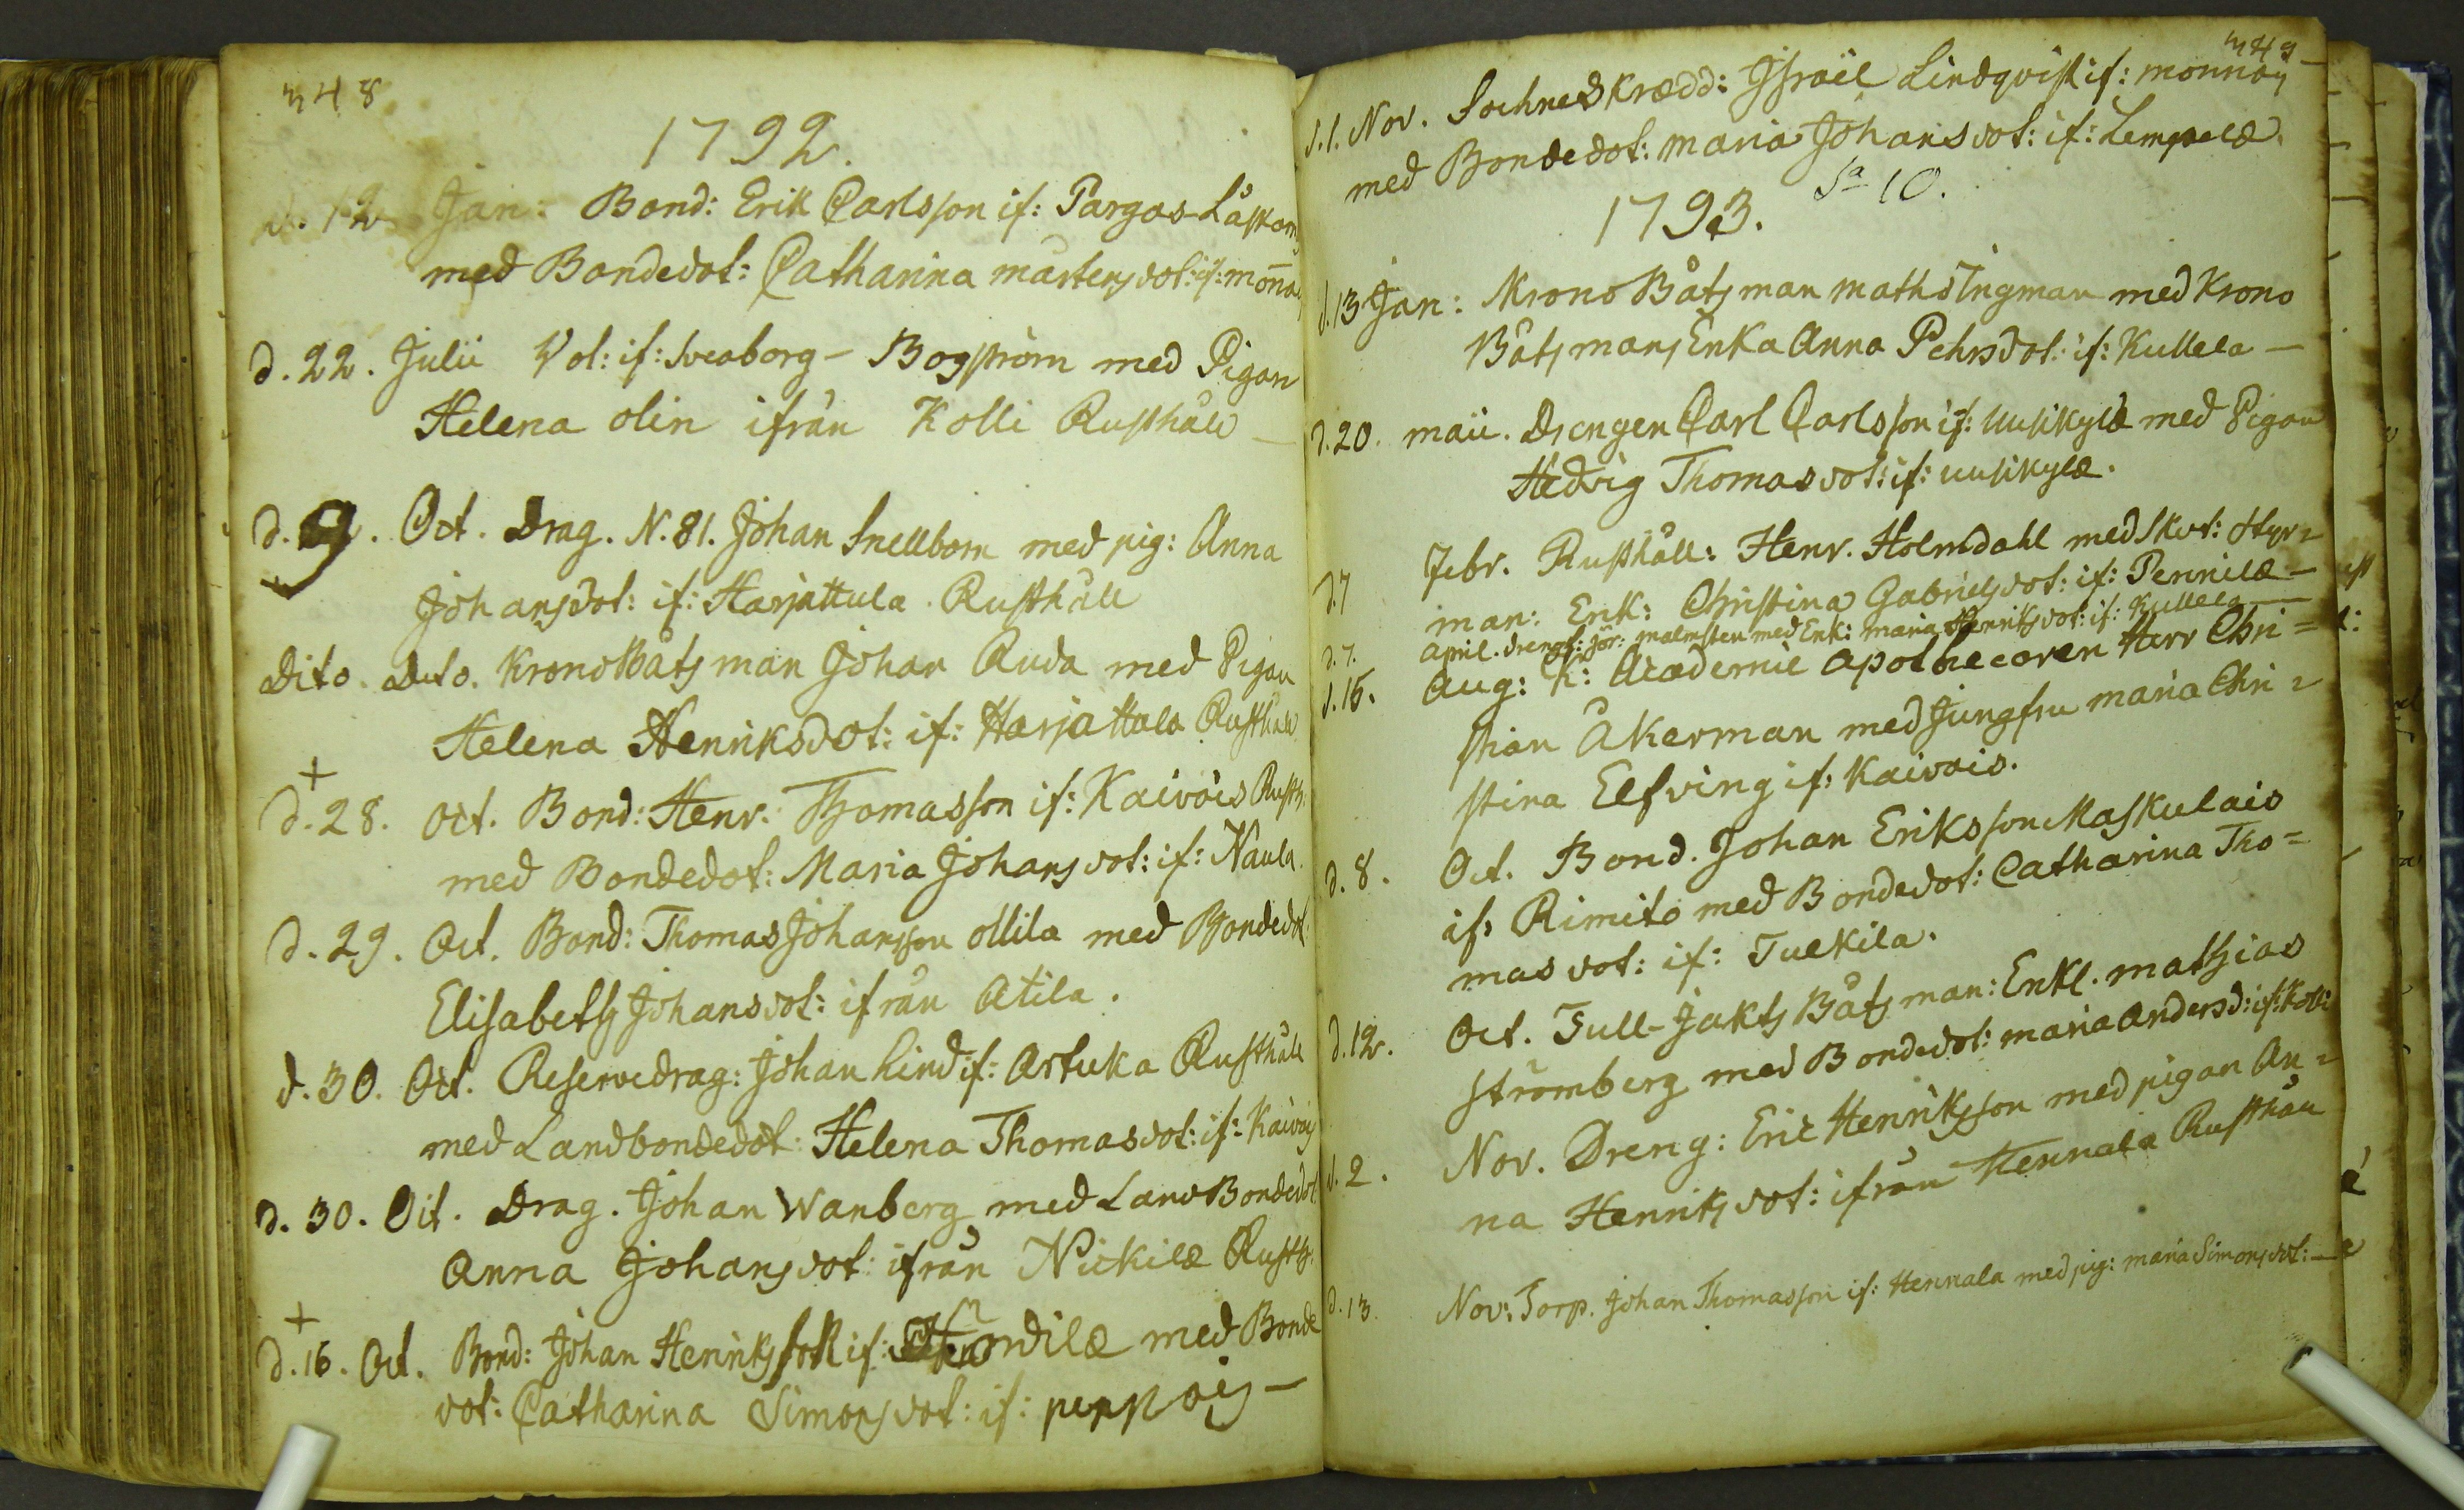 348
1792.
d. 12 Jan: Bond: Erik Carlsson if: Pargas-Låskam
med Bondedot: Catharina mårtensdot: if: mon̄a
d. 22. Julii Vol: if: Sveaborg - Bogström med Pigan
Helena olin ifrån Kolli Rusthåll -
d. 9. Oct. Drag. N. 81. Johan Snellbom med pig: Anna
Johansdot: if: Harjattula. Rusthåll
Dito. Dito. Krono Båtsman Johan Ruda med Pigan
Helena Henriksdot: if: Harjattula Rusthåll
+
d. 28. Oct. Bond: Henr. Thomasson if: Kaivois Rusth.
med Bondedot: Maria Johansdot: if: Naula.
d. 29. Oct. Bond: Thomas Johansson ollila med Bondedot.
Elisabeth Johansdot: ifrån Atila.
d. 30. Oct. Reservedrag: Johan Lind if: Artuka Rusthåll
med Landbondedot: Helena Thomasdot: if: Kaivois
d. 30. Oct. Drag. Johan Wanberg med LandBondedot
Anna Johansdot: ifrån Nickilæ Rusth.
+
d. 16. Oct. Bond: Johan Henriksson if: med Bonde
dot: Catharina Simonsdot: if: perpois -
349
d. 1. Nov. Sochneskrædd: Israël Lindqvist if: monnois
med Bondedot: maria Johansdot: if: Lempelæ.
Sa 10.
1793.
d. 13 Jan: Krono Båtsman maths Ingman med Krono
Båtsmans Enka Anna Pehrsdot: if: Kullela -
d. 20. maii. Drengen Carl Carlsson if: Uusikylæ med Pigan
Hedvig Thomasdot: if: uusikylæ.
d. 7 Febr. Rusthåll: Henr. Holmdahl med Skot: Styr=
man: Enk: Christina Gabrielsdot: if: Pennilæ -
d. 7. April. dreng: Jör: malmsten med Enk: maria Henriksdot: if: Kullela -
d. 15. Aug: K: Academie Apothecaren Herr Chri=
stian Åkerman med Jungfru maria Chri=
stina Elfving if: Kaivois.
d. 8. Oct. Bond. Johan Eriksson Maskulais
if: Rimito med Bondedot: Catharina Tho=
masdot: if: Tuekila.
d. 12. Oct. Tull-Jakts Båtsman: Enkl. mathias
Strömberg med Bondedot: maria Andersd: if: Kolli
d. 2. Nov. Dreng: Eric Henriksson med pigan An=
na Henriksdot: ifrån Hennala Rusthåll
d. 13. Nov: Torp. Johan Thomasson if: Hennala med pig: maria Simonsdot: -